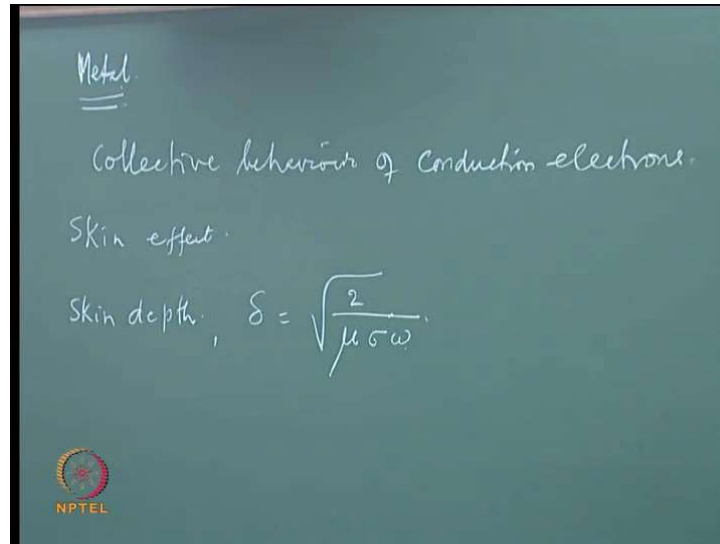 Metal.
Collective behaviour of conduction electrons.
Skin effect.
Skin depth, δ = √(2/μσω).
NPTEL